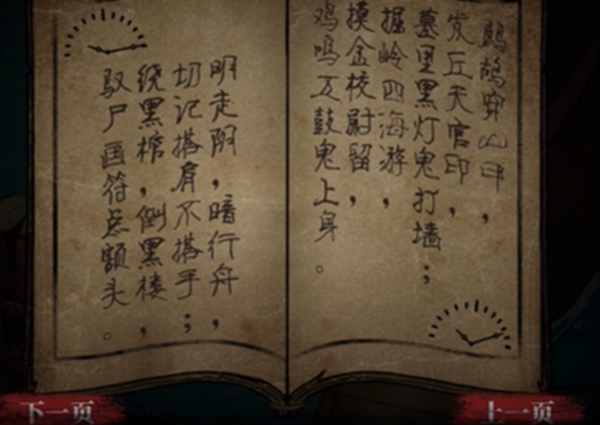 鹧鸪穿山甲，
发丘天官印，
墓里黑灯鬼打墙；
搬岭四海游，
摸金校尉留，
鸡鸣万鼓鬼上身。
明走阴，暗行舟，
切记搭肩不搭手；
绕黑棺，倒黑楼，
驭尸画符点额头。
下一页
上一页